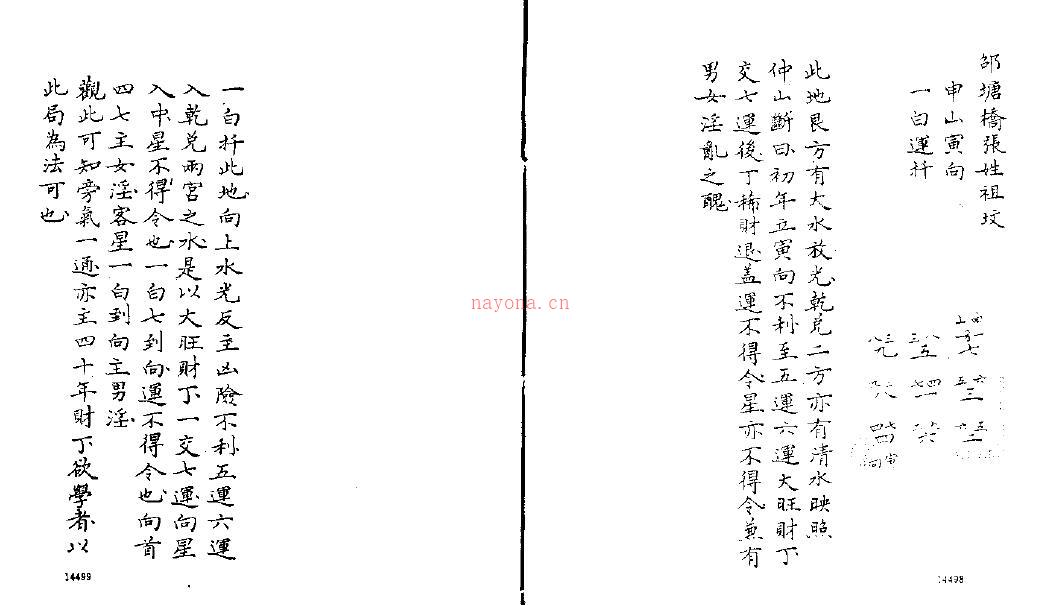 邵塘橋張姓祖坟
申山寅向
一白運扦
此地艮方有大水放光乾兌二方亦有清水映照
仲山斷曰初年立寅向不利至五運六運大旺財丁
交七運後丁稀財退盖運不得令星亦不得令兼有
男女淫亂之醜
14498
一白扦此地向上水光反主凶險不利五運六運
入乾兌兩宮之水是以大旺財丁一交七運向星
入中星不得令也一白七到向運不得令也向首
四七主女淫客星一白到向主男淫
觀此可知旁氣一通亦主四十年財丁欲學者以
此局為法可也
14499
nayona.cn